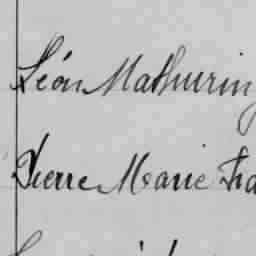 Léon Mathurin
Pierre Marie Fra